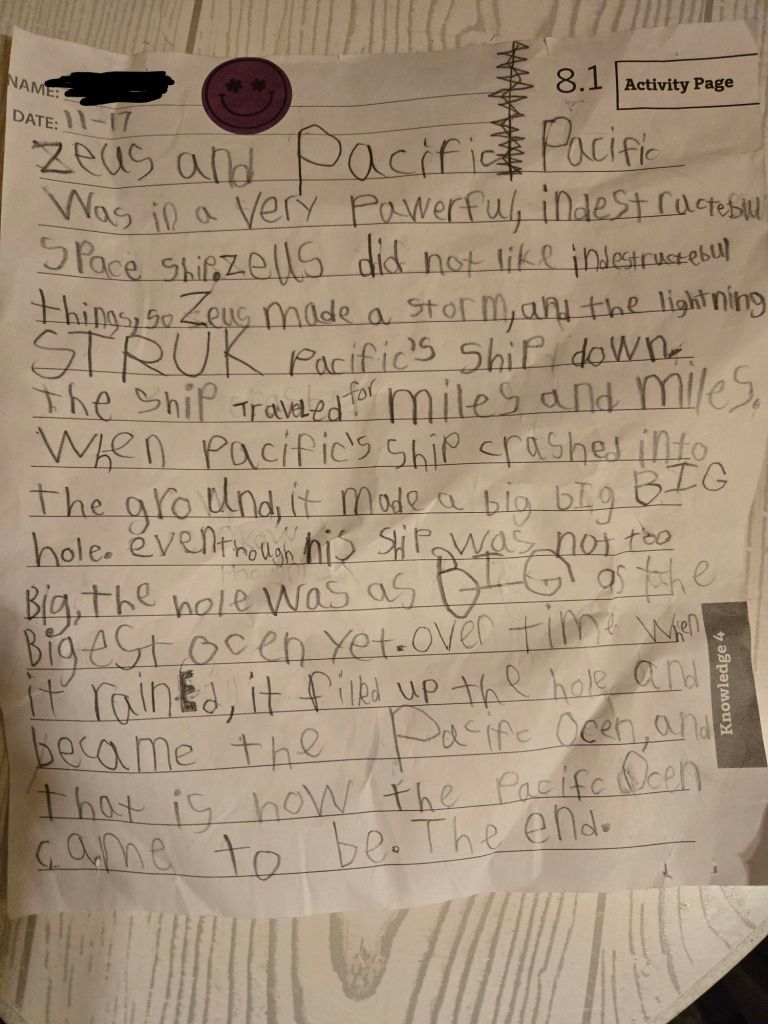 NAME:
8.1 Activity Page
DATE: 11-17
Zeus and Pacific Pacific
Was in a very Pawerful, indestructebul
Space ship. zeus did not like indestructebul
things, so Zeus made a storm, and the lightning
STRUK Pacific's ship down.
the ship Traveled for miles and miles.
When Pacific's ship crashed into
the ground, it made a big big BIG
hole. even though his ship was not too
Big, the hole was as BIG as the
Bigest ocen yet. over time when
it rained, it filled up the hole and
became the Pacifc Ocen, and
that is how the Pacifc Ocen
came to be. The end.
Knowledge 4